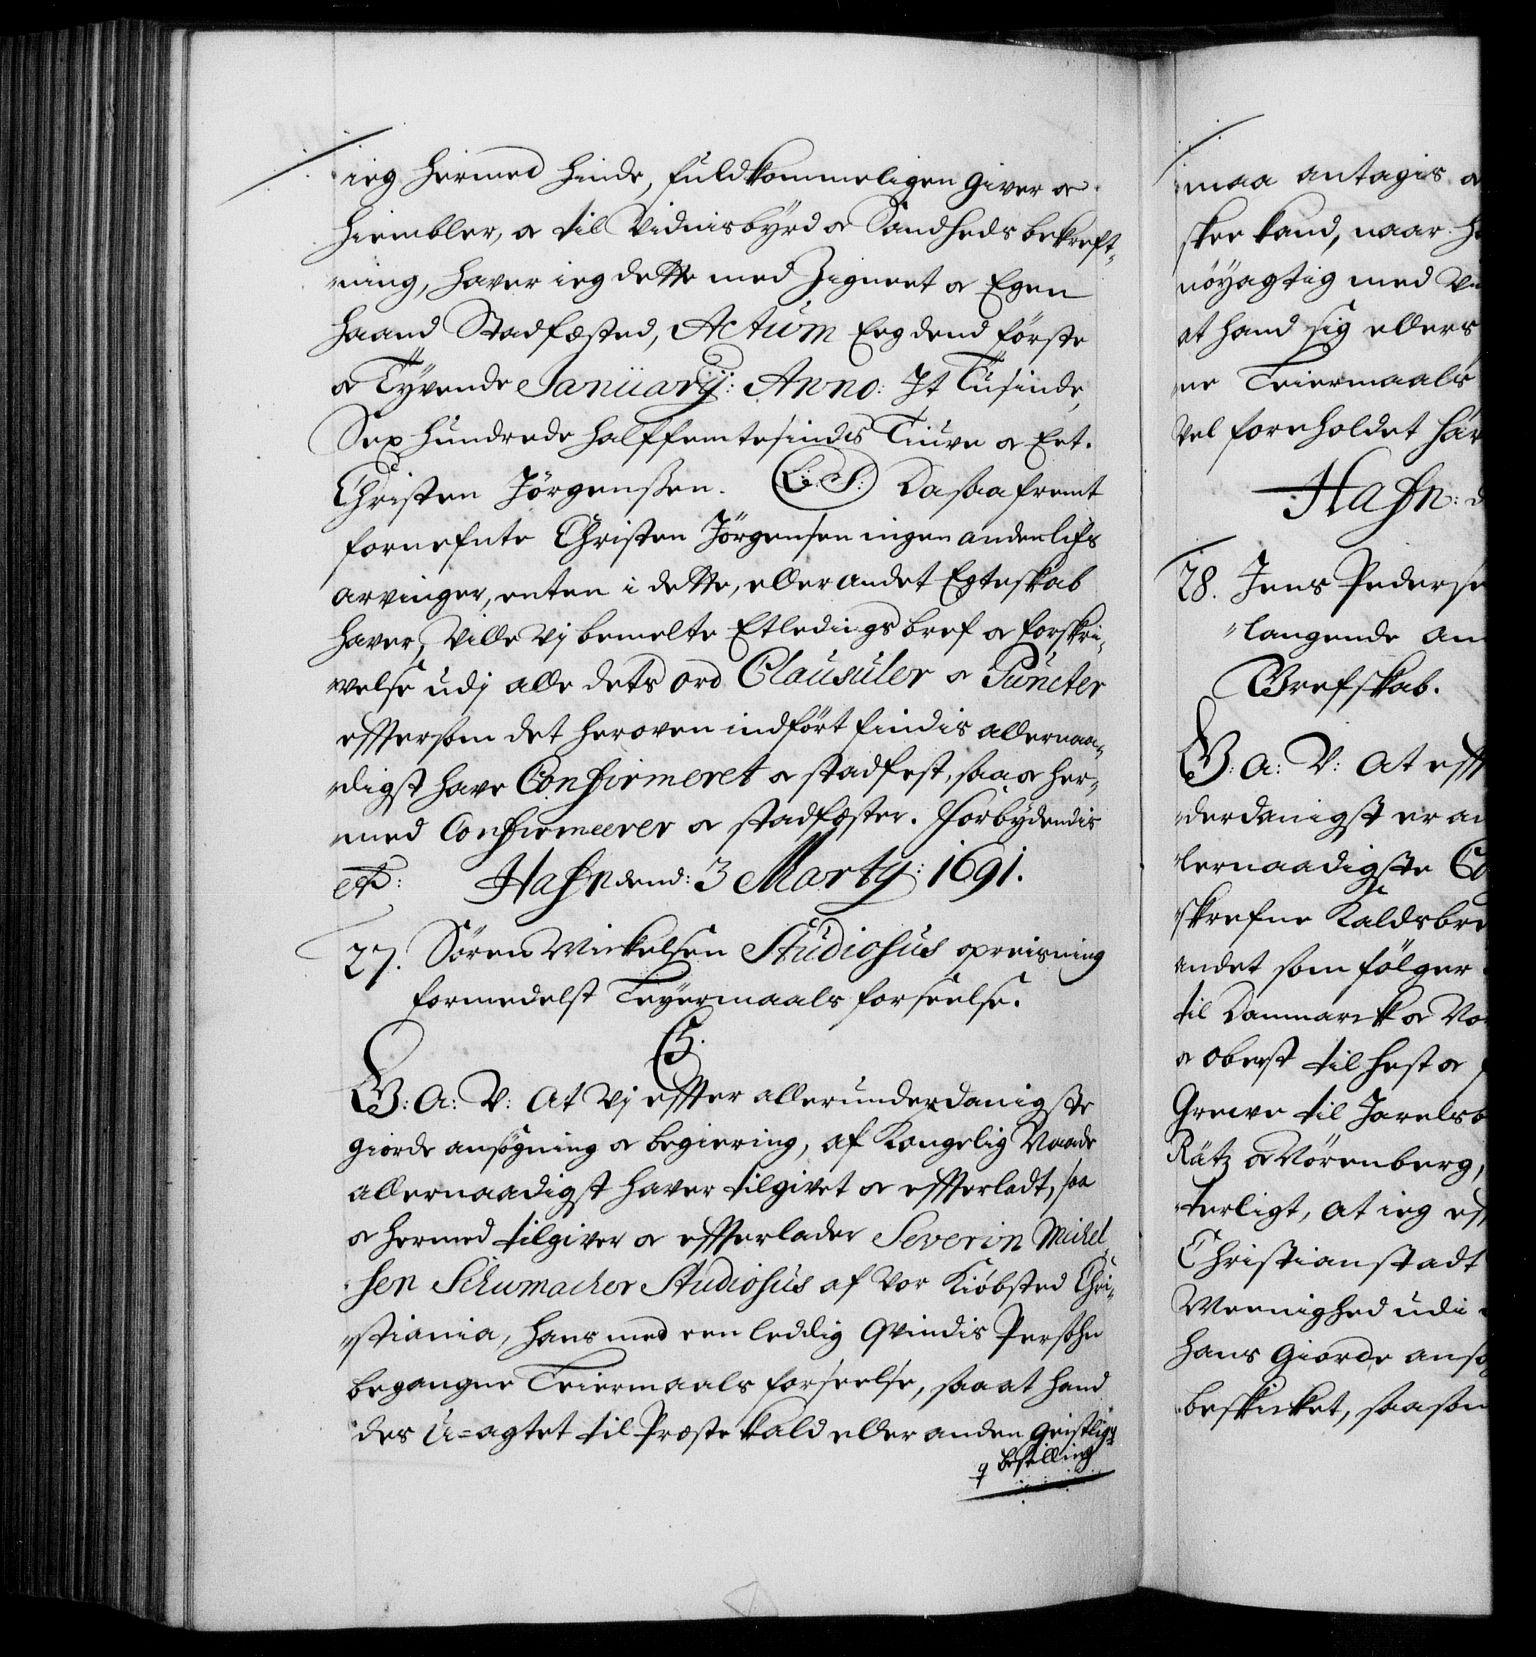 ieg hermed hinde, fuldkommeligen giver or
hiembler, or til Vidnisbÿrd or Sandheds bekreft,,
,,ning, haver ieg dette med Zignert or Egen
haand Stadfæsted, Actum Eeg dend förste
or Tÿvende Januarij: Anno: It Tusinde,
Sex hundrede halffemtesindis Tiuve or Eet.
Christen Jörgenssen. L: S: Da saafremt
fornefnte Christen Jörgensen ingen anden lifs
arvinger, enten i dette, eller andet Egteskab
haver, Ville Vj bemelte Etledings bref or forskri,,
,,velse udj alle dets ord Clausuler or Puncter
efftersom det heroven indfört findis allernaa,,
,,digst have Confirmeret or stadfest, saa or her,,
,,med Confirmeerer or stadfæster. Forbÿdendis
etc: Hafn dend: 3 Martij: 1691.
27. Sören Mickelsen Studiosus opreisning
formedelst Teÿermaals forseelse.
C5.
G: A: V: At Vj effter allerunderdanigste
giorde ansögning or begiering, af Kongelig Naade
allernaadigst haver tilgivet or effterladt, saa
or hermed tilgiver or effterlader Severin Michel,,
sen Schumacher Studiosus af Vor Kiöbsted Chri,,
,,stiania, hans med een leddig Qvindis Persohn
begangne Teiermaals forseelse, saa at hand
des U=agtet til Præste Kald eller anden Geistlig
bestilling
maa antagis or
skee kand, naar
nöÿagtig med
at hand sig ellers
,,ne Teiermaals
vel foreholdet
Hafn:
28. Jens Peders
,,langende
Brefskab.
G: A: V: At efft
,,derdanigst er
lernaadigste
skrefne Kaldsbre
,,ndet som fölger
til Danmarck or
or oberst til hest or
Greve til Jarelsb
Rätz or Nörenberg,
terligt, at ieg eff
Christianstadt
Meenighed udi
hans giorde ansö
beskicket, saasom